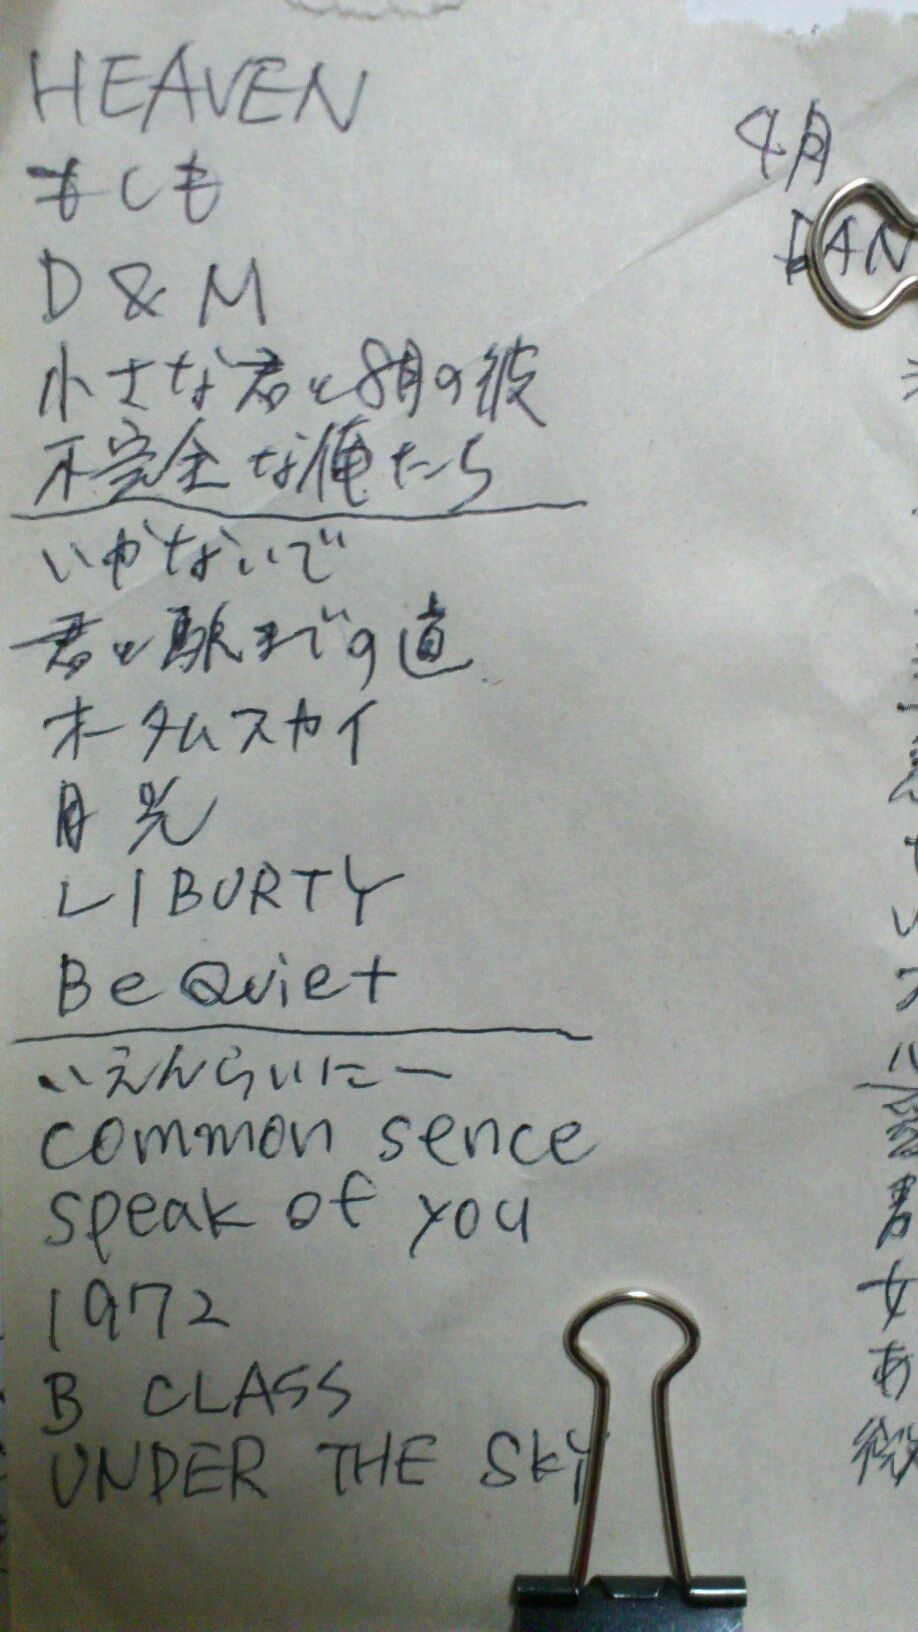 HEAVEN
もしも
D & M
小さな君と8月の彼
不完全な俺たち
いかないで
君と駅までの道
オータムスカイ
月光
LIBURTY
Be Quiet
いえんらいにー
common sence
speak of you
1972
B CLASS
UNDER THE SKY
4月
女
あ
微